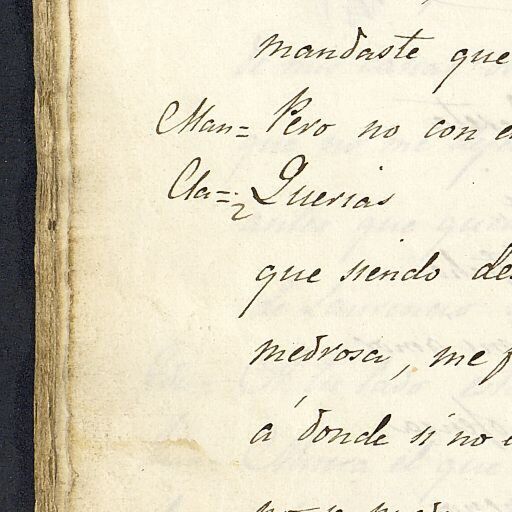 mandaste que
Man= Pero no con
Cla= ¿Querias
que siendo
medrosa, me
á donde si no